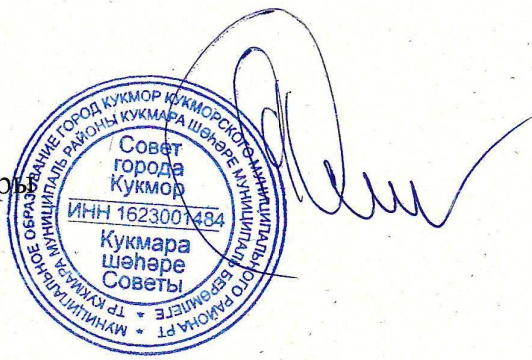 МУНИЦИПАЛЬНОЕ ОБРАЗОВАНИЕ ГОРОД КУКМОР КУКМОРСКОГО МУНИЦИПАЛЬНОГО РАЙОНА РТ
ТР КУКМАРА МУНИЦИПАЛЬ РАЙОНЫ КУКМАРА ШӘҺӘРЕ МУНИЦИПАЛЬ БЕРӘМЛЕГЕ
Совет
города
Кукмор
ИНН 1623001484
Кукмара
шәһәре
Советы